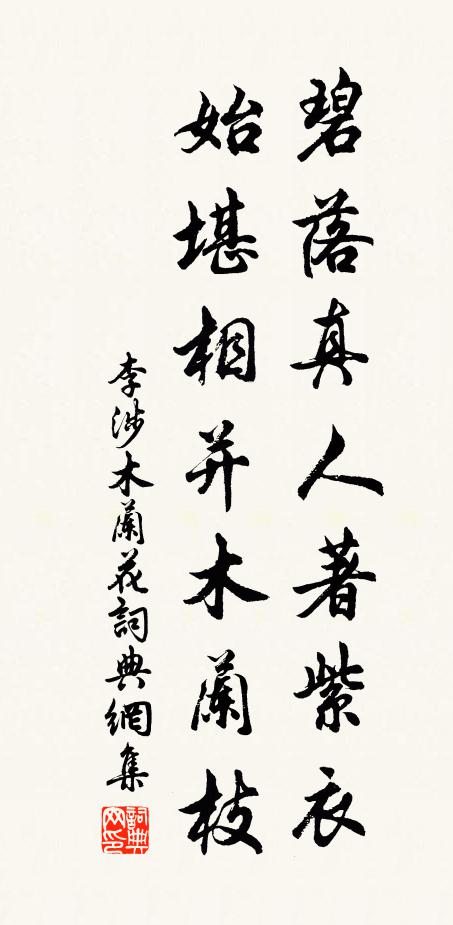 碧落真人著紫衣
始堪相并木蘭枝
李涉木蘭花詞典網集
詞典网印